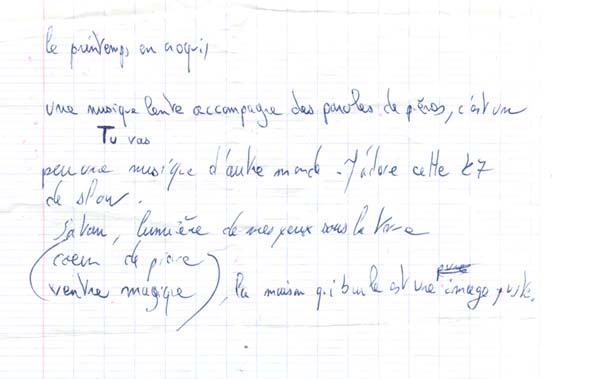 le printemps en croquis
une musique lente accompagne des paroles de piéros, c'est un
Tu vas
peu une musique d'autre monde. J'adore cette K7
de slow.
Satan, lumière de mes yeux sous la terre
(coeur de pierre
ventre magique), la maison qui brule est une image juste.